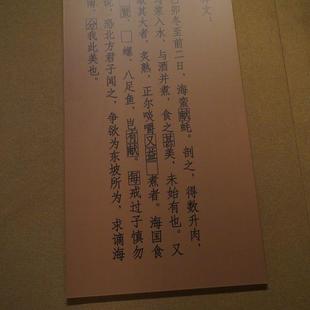 文：
己卯冬至前二日，海蛮献蚝。剖之，得数升肉，
浆入水，与酒并煮，食之甚美，未始有也。又
取其大者，炙熟，正尔啖嚼又益□煮者。海国食
蟹、□螺、八足鱼，岂有献。每戒过子慎勿
说，恐北方君子闻之，争欲为东坡所为，求谪海
南，分我此美也。